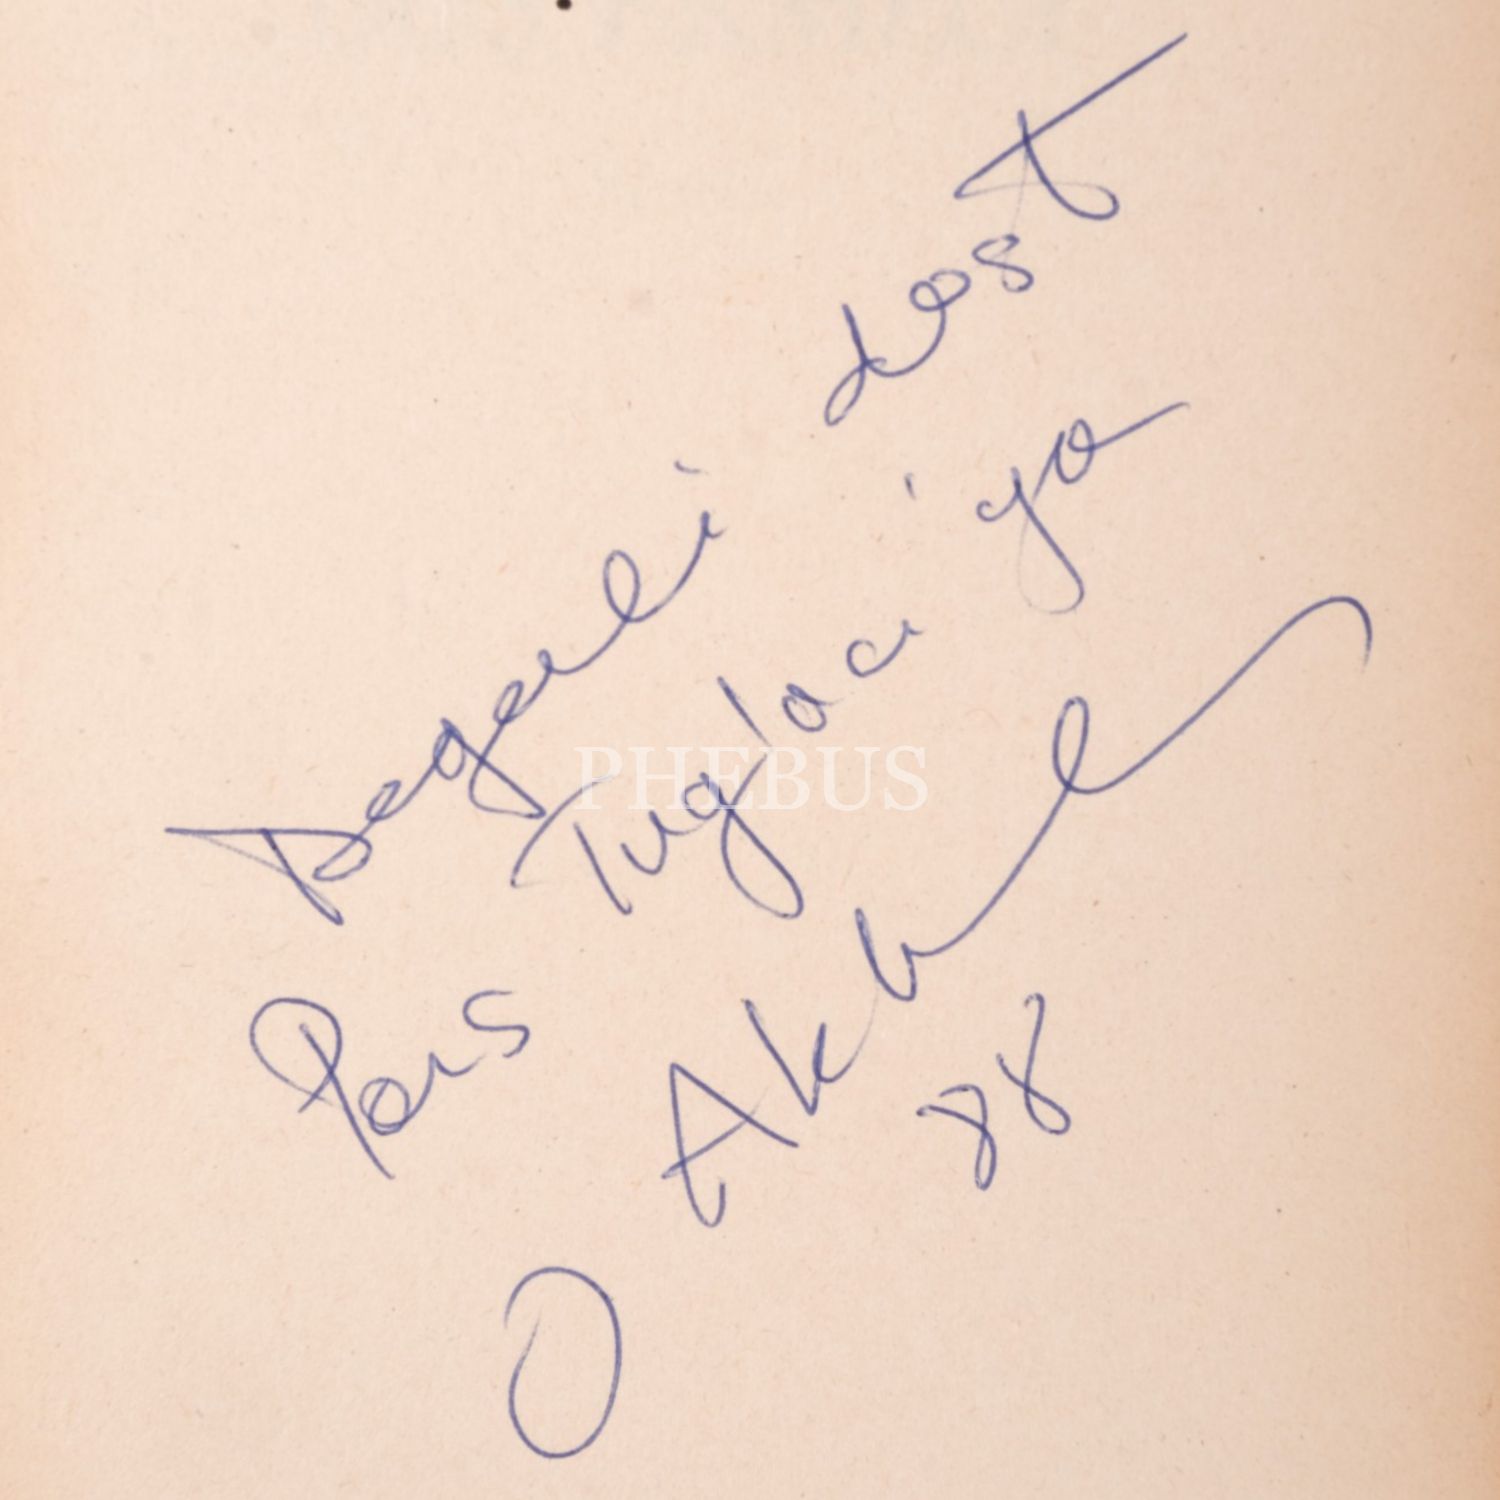 Değerli dost
Pars Tuğlacı'ya
O Akbal
88
PHEBUS